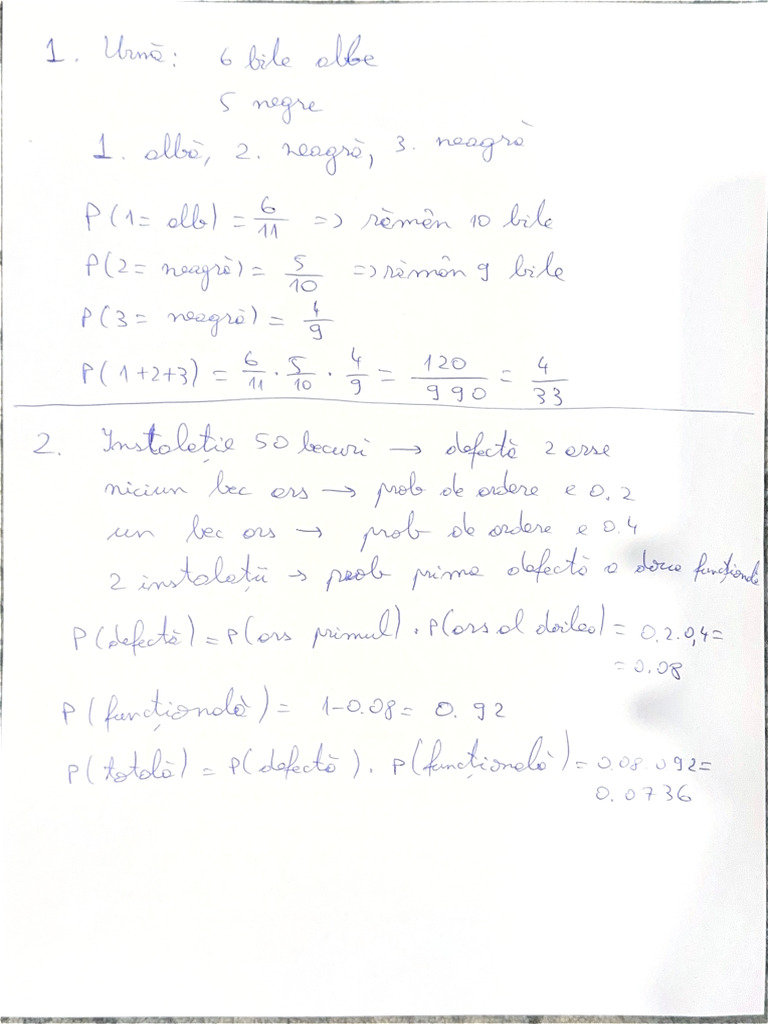 1. Urnă: 6 bile albe
5 negre
1. albă, 2. neagră, 3. neagră
P(1= alb) = 6/11 => rămân 10 bile
P(2= neagră) = 5/10 => rămân 9 bile
P(3= neagră) = 4/9
P(1+2+3) = 6/11 · 5/10 · 4/9 = 120/990 = 4/33
2. Instalație 50 becuri → defectă 2 arse
niciun bec ars → prob de ardere e 0.2
un bec ars → prob de ardere e 0.4
2 instalații → prob prima defectă a doua funcționale
P(defectă) = P(ars primul) · P(ars al doilea) = 0.2·0,4=
= 0.08
P(funcțională) = 1-0.08 = 0.92
P(totală) = P(defectă) · P(funcțională) = 0.08·092=
0.0736